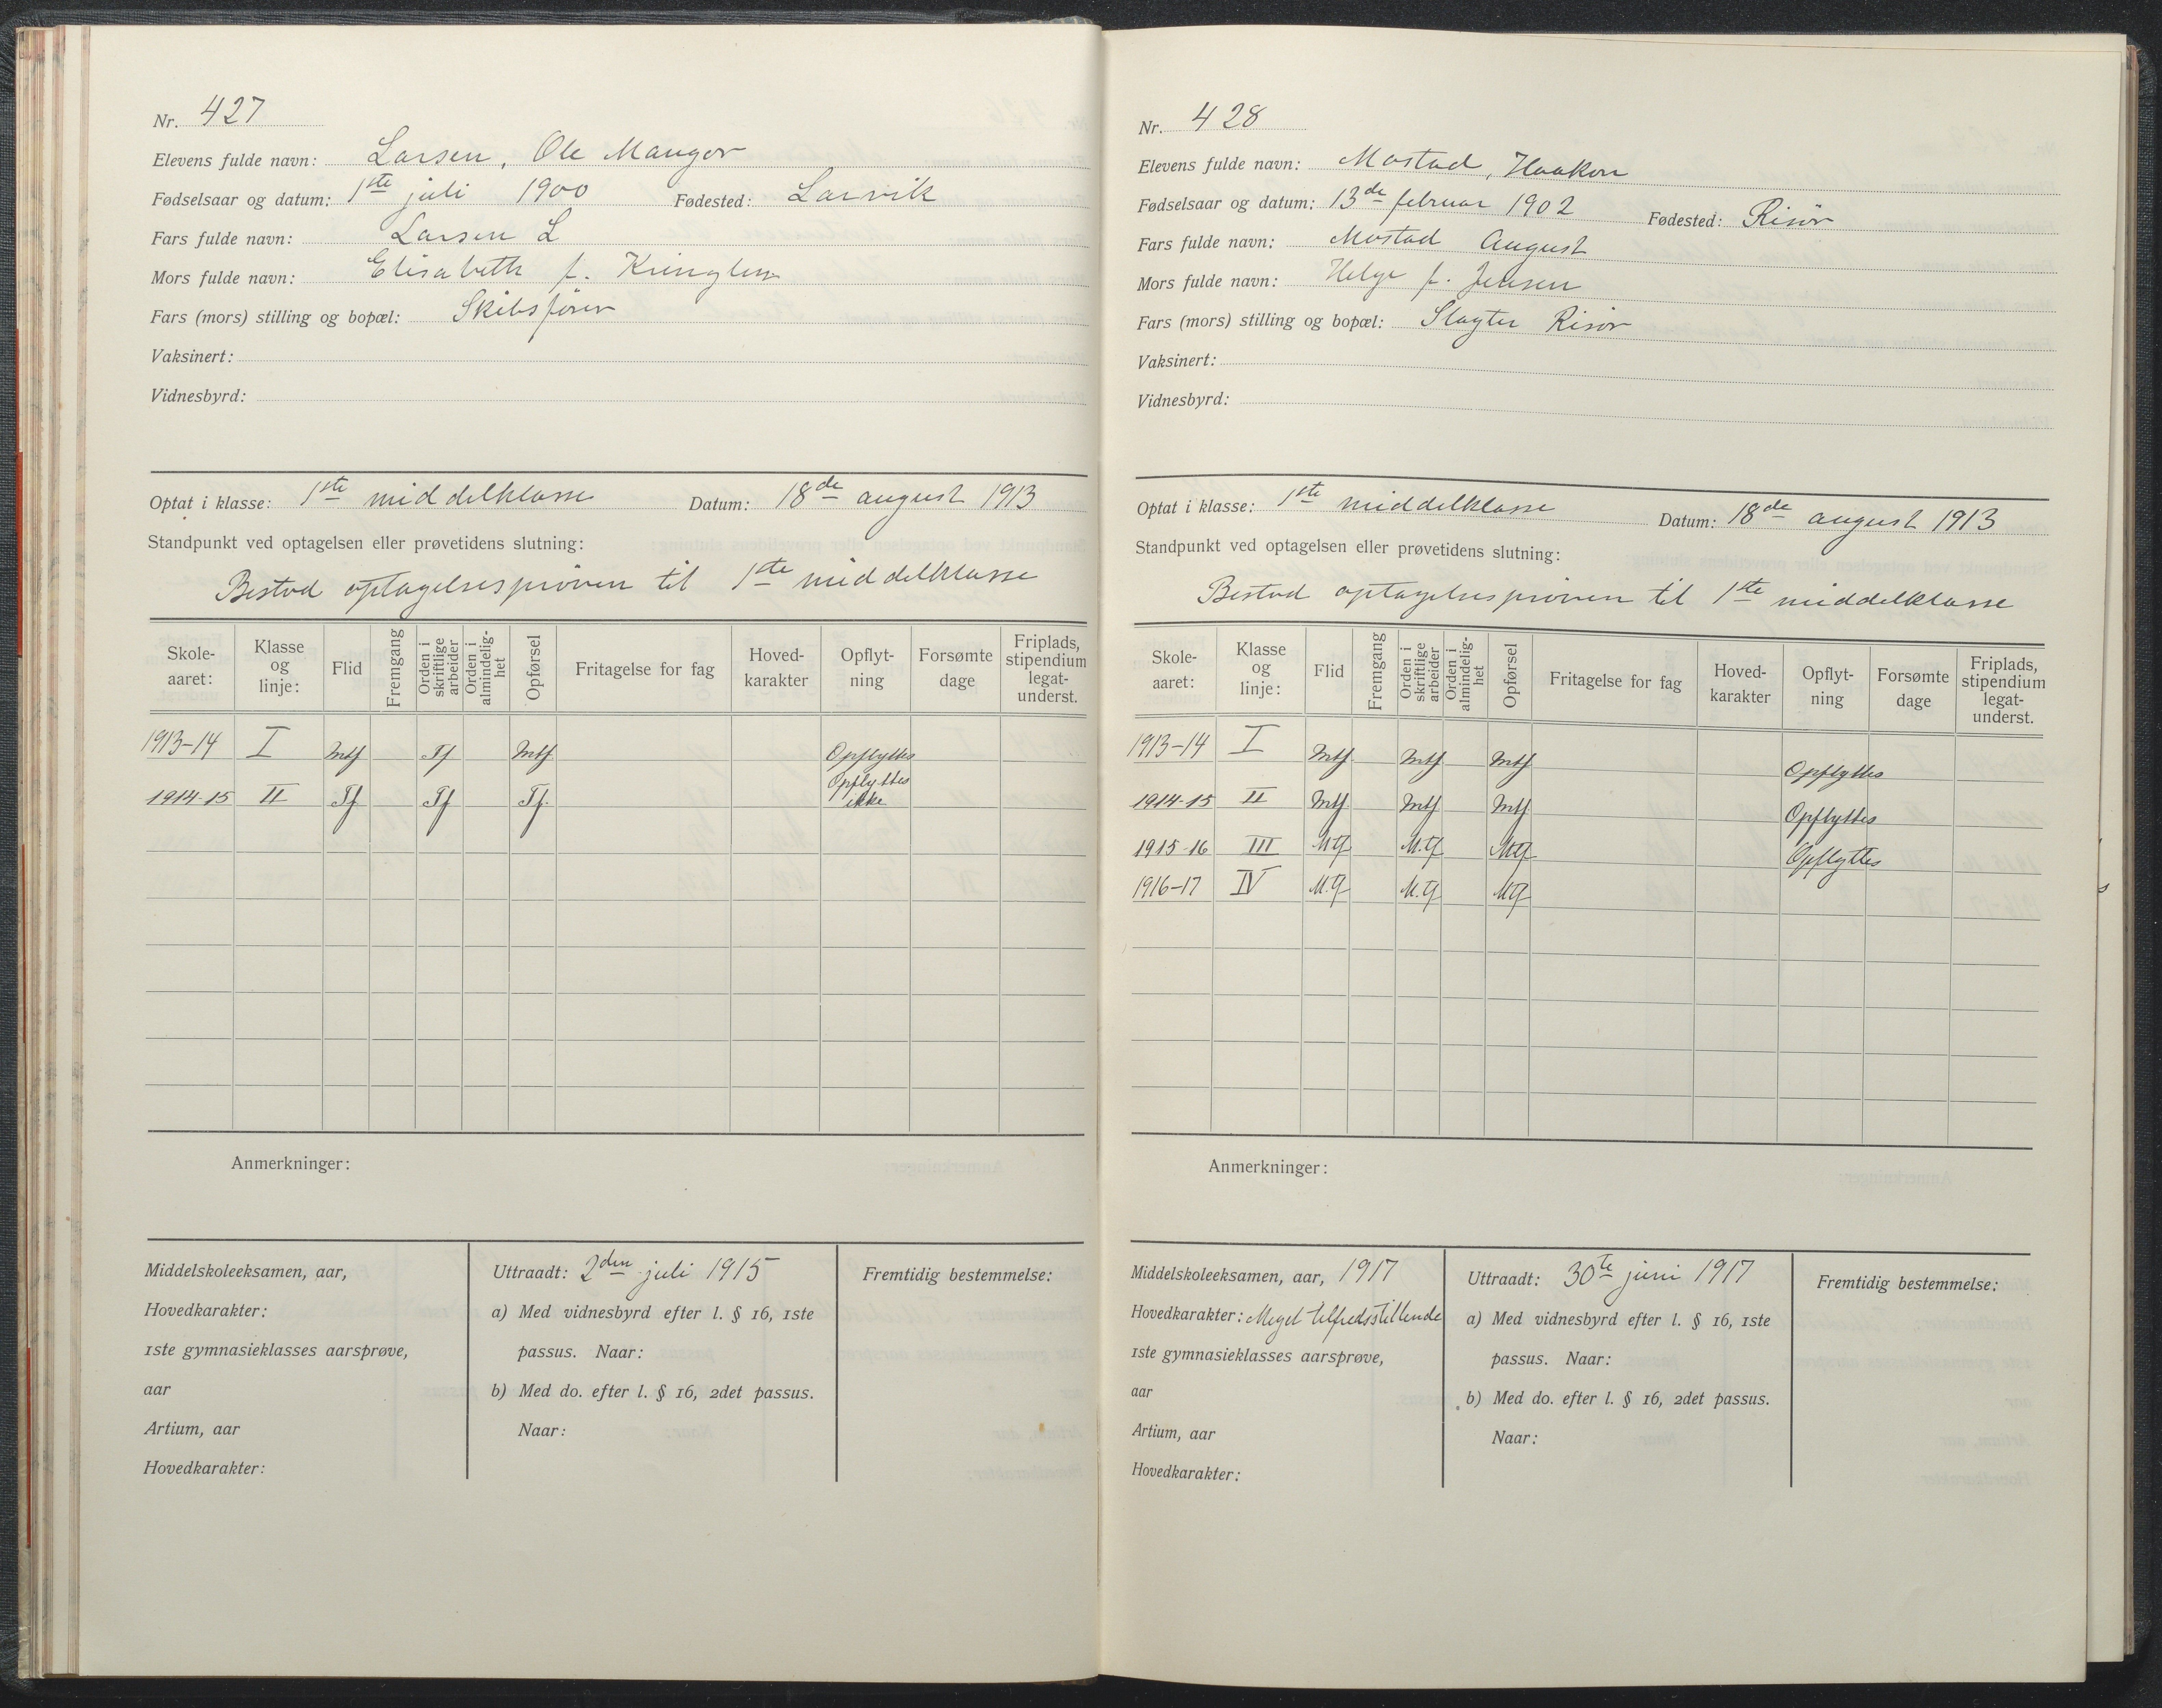 Nr. 427
Elevens fulde navn: Larsen, Ole Mangor
Fødselsaar og datum: 1ste juli 1900 Fødested: Larvik
Fars fulde navn: Larsen L
Mors fulde navn: Elisabeth f.
Fars (mors) stilling og bopæl: Skibsfører
Vaksinert:
Vidnesbyrd:
Optat i klasse: 1ste middelklasse Datum: 18de august 1913
Standpunkt ved optagelsen eller prøvetidens slutning:
Bestod optagelsesprøven til 1ste middelklasse
Skole-aaret: Klasse og linje: Flid Fremgang Orden i skriftlige arbeider Orden i almindelig-het Opførsel Fritagelse for fag Hoved-karakter Opflyt-ning Forsømte dage Friplads, stipendium legat-underst.
1913-14 I Mtf Tf Mtf Opflyttes
1914-15 II Tf Tf Tf. Opflyttes ikke
Anmerkninger:
Middelskoleeksamen, aar,
Hovedkarakter:
1ste gymnasieklasses aarsprøve,
aar
Artium, aar
Hovedkarakter:
Uttraadt: 2den juli 1915
a) Med vidnesbyrd efter l. § 16, 1ste
passus. Naar:
b) Med do. efter l. § 16, 2det passus.
Naar:
Fremtidig bestemmelse:
Nr. 428
Elevens fulde navn: Mostad, Haakon
Fødselsaar og datum: 13de februar 1902 Fødested: Risør
Fars fulde navn: Mostad August
Mors fulde navn: Helge f. Jensen
Fars (mors) stilling og bopæl: Slagter Risør
Vaksinert:
Vidnesbyrd:
Optat i klasse: 1ste middelklasse Datum: 18de august 1913
Standpunkt ved optagelsen eller prøvetidens slutning:
Bestod optagelsesprøven til 1ste middelklasse
Skole-aaret: Klasse og linje: Flid Fremgang Orden i skriftlige arbeider Orden i almindelig-het Opførsel Fritagelse for fag Hoved-karakter Opflyt-ning Forsømte dage Friplads, stipendium legat-underst.
1913-14 I Mtf Mtf Mtf Opflyttes
1914-15 II Mtf Mtf Mtf Opflyttes
1915-16 III Mtf M.tf Mtf Opflyttes
1916-17 IV M.tf M.tf Mtf
Anmerkninger:
Middelskoleeksamen, aar, 1917
Hovedkarakter: Meget tilfredsstillende
1ste gymnasieklasses aarsprøve,
aar
Artium, aar
Hovedkarakter:
Uttraadt: 30te juni 1917
a) Med vidnesbyrd efter l. § 16, 1ste
passus. Naar:
b) Med do. efter l. § 16, 2det passus.
Naar:
Fremtidig bestemmelse: